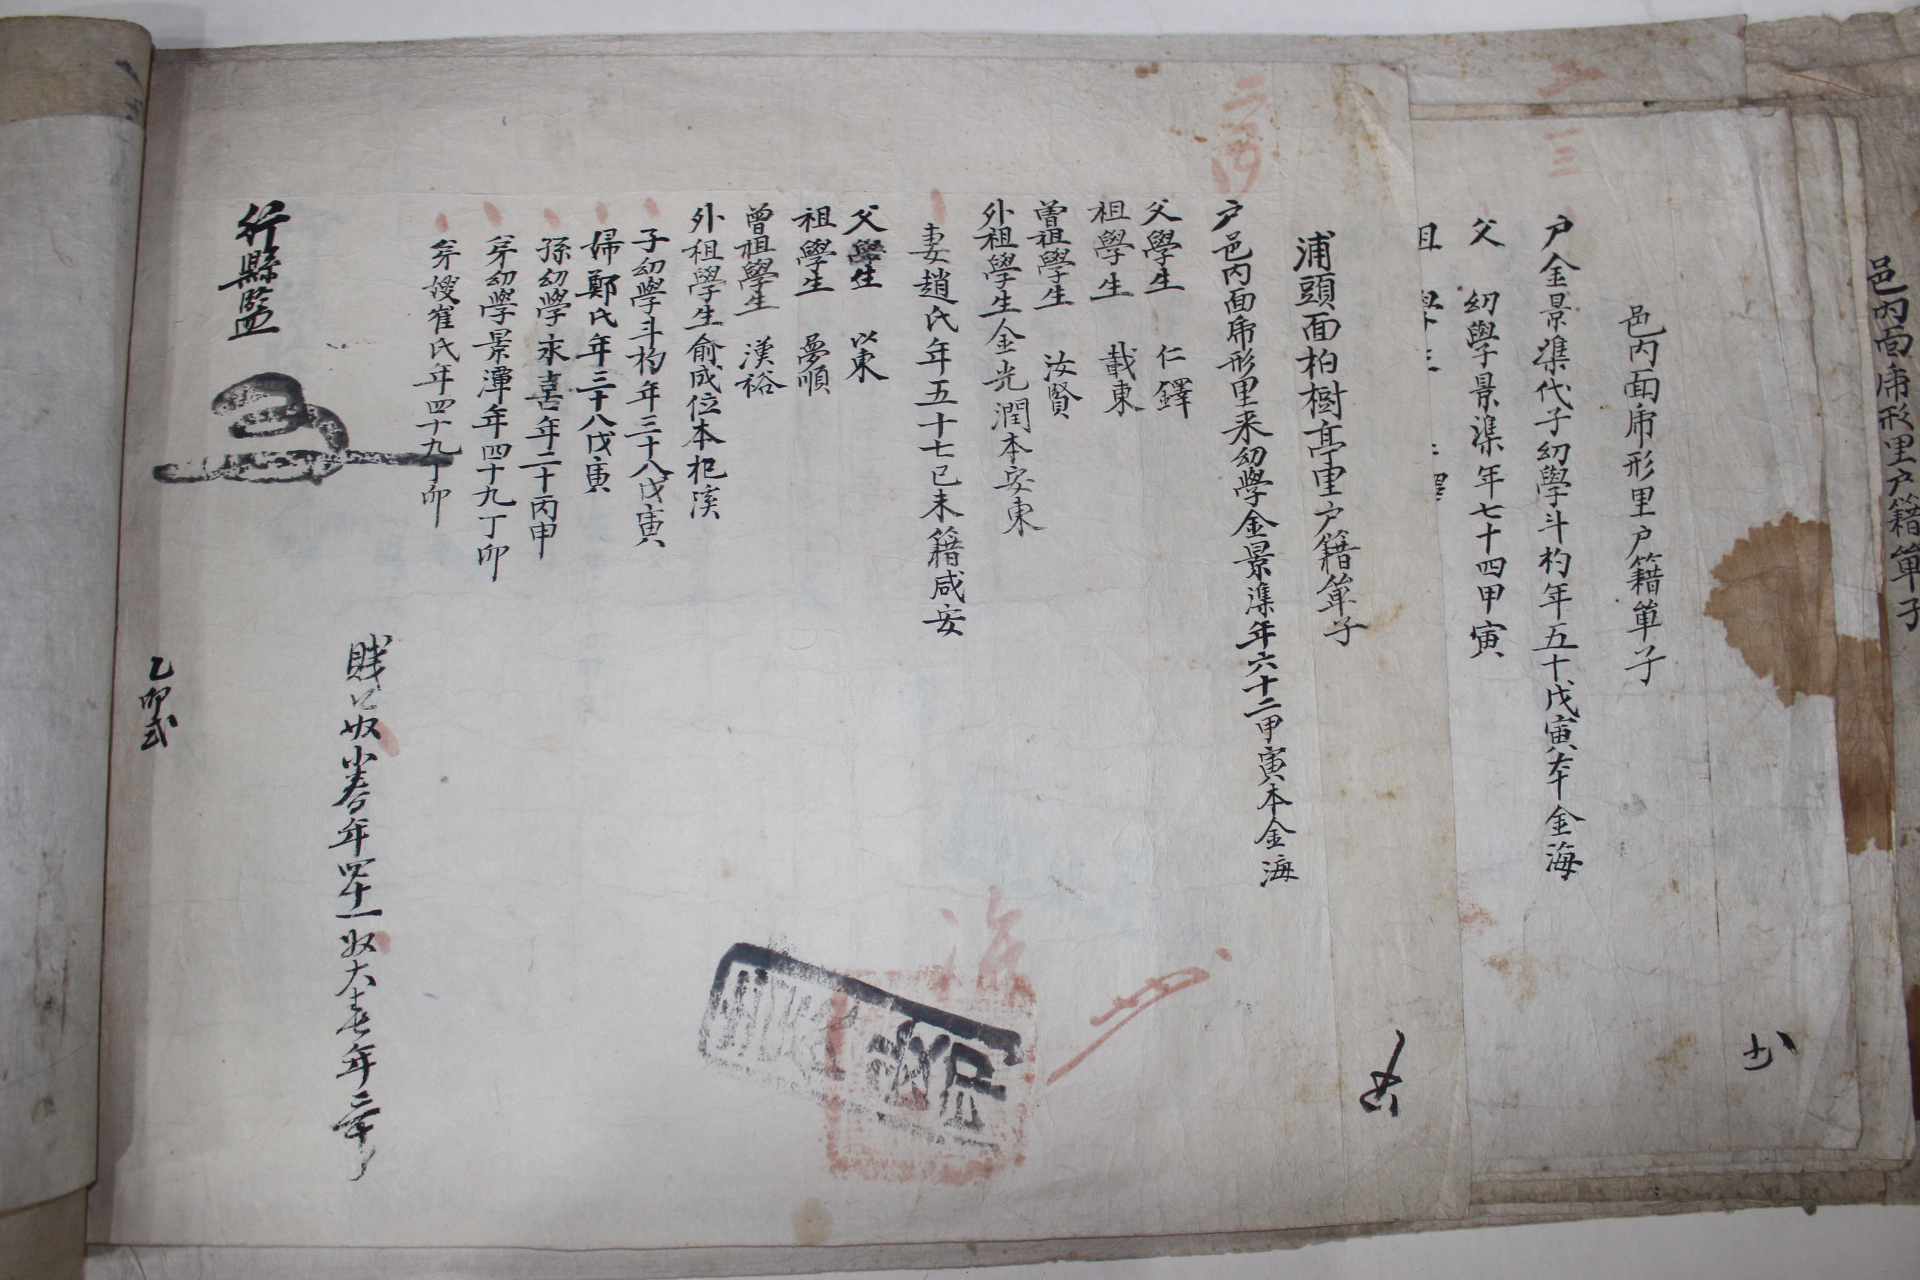 邑內面席形里戶籍單子
邑內面席形里戶籍單子
戶金景渠代子幼學斗杓年五十戊寅本金海
父 幼學景渠年七十四甲寅
祖 學生
浦頭面柏樹亭里戶籍單子
戶邑內面席形里來幼學金景渠年六十二甲寅本金海
父學生 仁鐸
祖學生 載東
曾祖學生 汝賢
外祖學生金光潤本安東
妻趙氏年五十七己未籍咸安
父學生 以東
祖學生 夢順
曾祖學生 漢裕
外祖學生俞成位本杞溪
子幼學斗杓年三十八戊寅
婦鄭氏年三十八戊寅
孫幼學永喜年二十丙申
弟幼學景潭年四十九丁卯
弟嫂崔氏年四十九丁卯
賤口奴小春年四十一奴大春年
行縣監
乙卯式